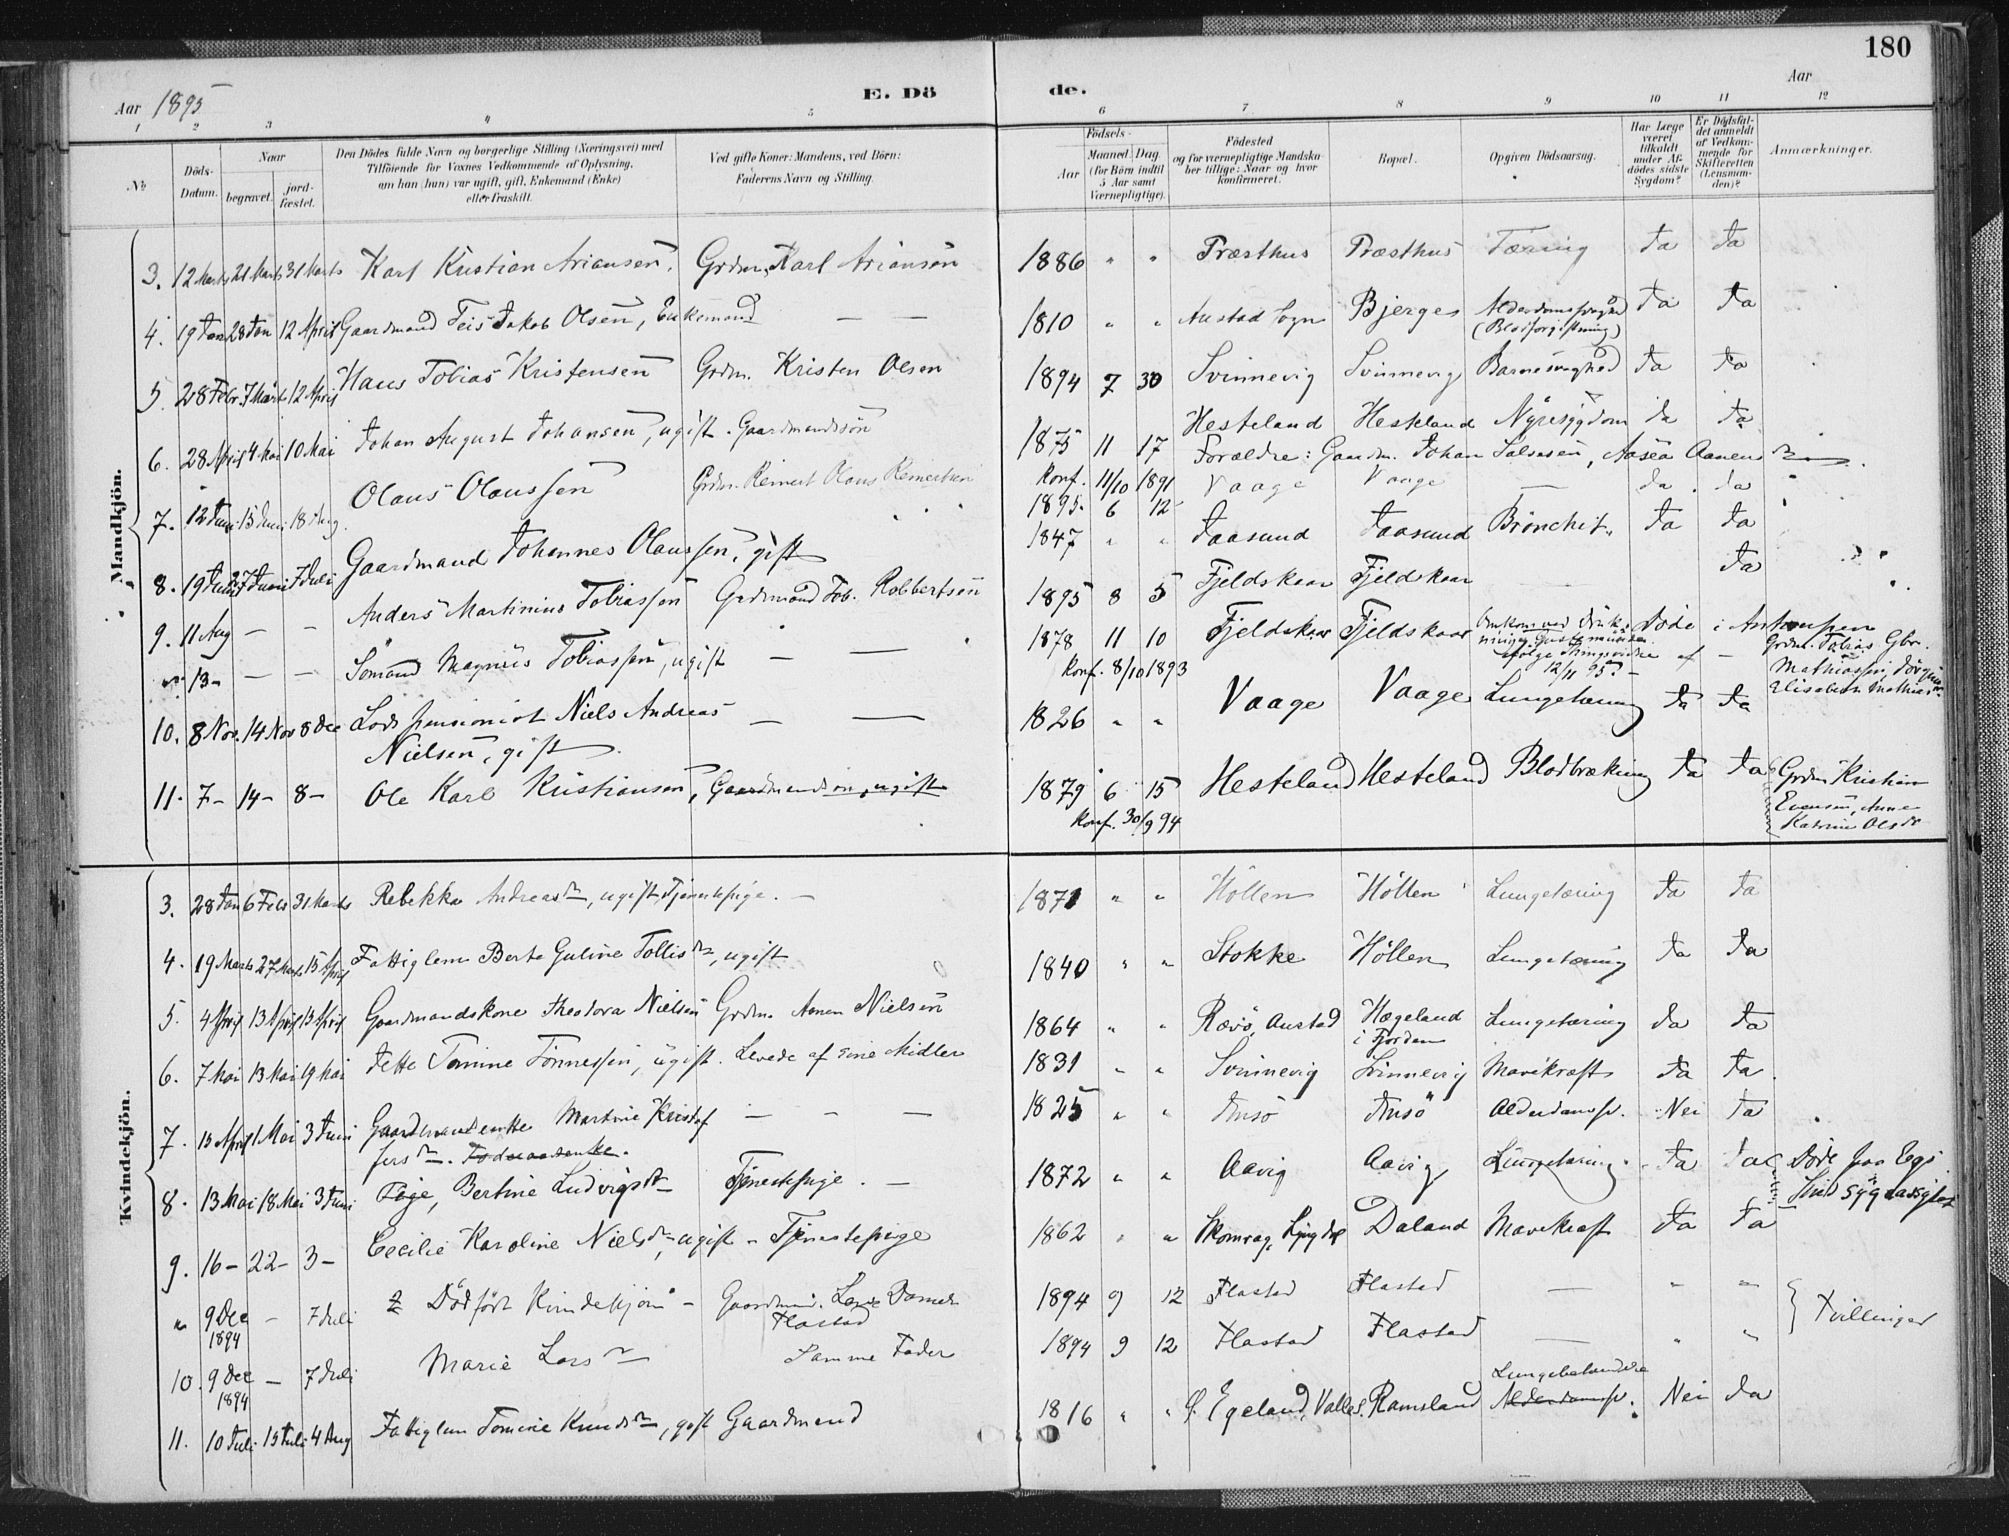 180
Aar 1895 E. Dö de. Aar
1 2 3 4 5 6 7 8 9 10 11 12
№ Döds-Datum. Naar begravet. jord-fæstet. Den Dödes fulde Navn og borgerlige Stilling (Næringsvei) med Tilföiende for Voxnes Vedkommende af Oplysning, om han (hun) var ugift, gift, Enkemand (Enke) eller fraskilt. Ved gifte Koner: Mandens, ved Börn: Faderens Navn og Stilling. Födsels- Aar Maaned. Dag (for Börn indtil 5 Aar samt Værnepligtige). Födested og for værnepligtige Mandskaber tillige: Naar og hvor konfirmeret. Bopæl. Opgiven Dödsaarsag. Har Læge været tilkaldt under Afdödes sidste Sygdom? Er Dödsfaldet anmeldt af Vedkommende for Skifteretten (Lensmanden)? Anmærkninger.
Mandkjön.
3. 12 Marts 21 Marts 31 Marts Karl Kristian Ariansen. Grdm. Karl Ariansen 1886 " " Præsthus Præsthus Tæring Ja Ja
4. 19 Jan 28 Jan 12 April Gaardmand Teis Jakob Olsen, Enkemand — — 1810 " " Austad Sogn Bjerges Alderdomssvaghed (Blodforgiftning) Ja Ja
5. 28 Febr. 7 Marts 12 April Hans Tobias Kristensen Grdm. Kristen Olsen 1894 7 30 Svinnevig Svinnevig Barnesvaghed Ja Ja
6. 28 April 4 Mai 10 Mai Johan August Johansen, ugift. Gaardmandssön 1875 11 17 Hesteland Hesteland Nyresygdom Ja Ja
Konf. 11/10 1891 Forældre: Gaardm. Johan Salvesen, Aasea Aanensdr.
7. 12 Juni 15 Juni 18 Aug. Olaus Olaussen Grdm. Reinert Olaus Reinertsen 1895 6 12 Vaage Vaage — Ja Ja
8. 19 Juni 27 Juni 7 Juli Gaardmand Johannes Olaussen, gift 1847 " " Jaasund Jaasund Bronchit. Ja Ja
9. 11 Aug — — Anders Martinius Tobiassen Gardmand Tob. Robbertsen 1895 8 5 Fjeldskaar Fjeldskaar — Ja
13 — — — Sömand Magnus Tobiassen, ugift — — 1878 11 10 Fjeldskaar Fjeldskaar Omkom ved Druk- Döde i Antwerpen
Konf. 8/10 1893 ifölge Thingsvidne af 12/11 95 — Grdm. Tobias Gbr. Mathiassen, Elisabeth Mathiasdr.
10. 8 Nov. 14 Nov 8 Dec Lodspensionist Niels Andreas — — 1826 " " Vaage Vaage Lungetæring Ja Ja
Nielsen, gift.
11. 7 — 14 — 8 — Ole Karl Kristiansen, Gaardmandssön, ugift 1879 6 15 Hesteland Hesteland Blodbrækning Ja Ja Grdm Kristian
Konf. 30/9 94 Evensen, Anne Katrine Olsdr
Kvindekjön.
3. 28 Jan 6 Feb 31 Marts Rebekka Andreasdr, ugift, Tjenestepige. — 1871 " " Höllen Höllen Lungetæring Ja Ja
4. 19 Marts 27 Marts 15 April Fattiglem Berte Guline Tollisdr, ugift 1840 " " Stokke Höllen Lungetæring Ja Ja
5. 4 April 13 April 13 April Gaardmandskone Theodora Nielsen Grdm. Aanen Nielsen 1864 " " Rævö, Austad Hægeland i Fjorden Lungetæring Ja Ja
6. 7 Mai 13 Mai 19 Mai Jette Tomine Tönnessen, ugift. Levede af sine Midler 1831 " " Svinnevig Svinnevig Mavekræft Ja Ja
7. 15 April 1 Mai 3 Juni Gaardmandsenke Martine Kristof — — — 1825 " " Jusö Jusö Alderdomssv. Nei Ja
fersdr.
8. 13 Mai 18 Mai 3 Juni Pige, Bertine Ludvigsdr Tjenestepige. — 1872 " " Aavig Aavig Lungetæring Ja Ja Döde paa Egs
Sygeasyl
9. 16 — 22 — 3 — Cecilie Karoline Nielsdr, ugift — Tjenestepige 1862 " " Skomrag, Lyngdal Daland Mavekræft Ja Ja
" 9 Dec 1894 — 7 Juli Dödfödt Kvindekjön — Gaardmand. Lars Flastad 1894 9 12 Flastad Flastad — " " Tvillinger
10. 9 Dec 1894 — 7 Juli Marie Larsdr Samme Fader 1894 9 12 Flastad Flastad — " "
11. 10 Juli 15 Juli 4 Aug Fattiglem Tomine Knudsdr, gift Gaardmand 1816 " " Ö. Egeland, Valles. Ramsland Lungebetændelse Alderdomssv. Nei Ja